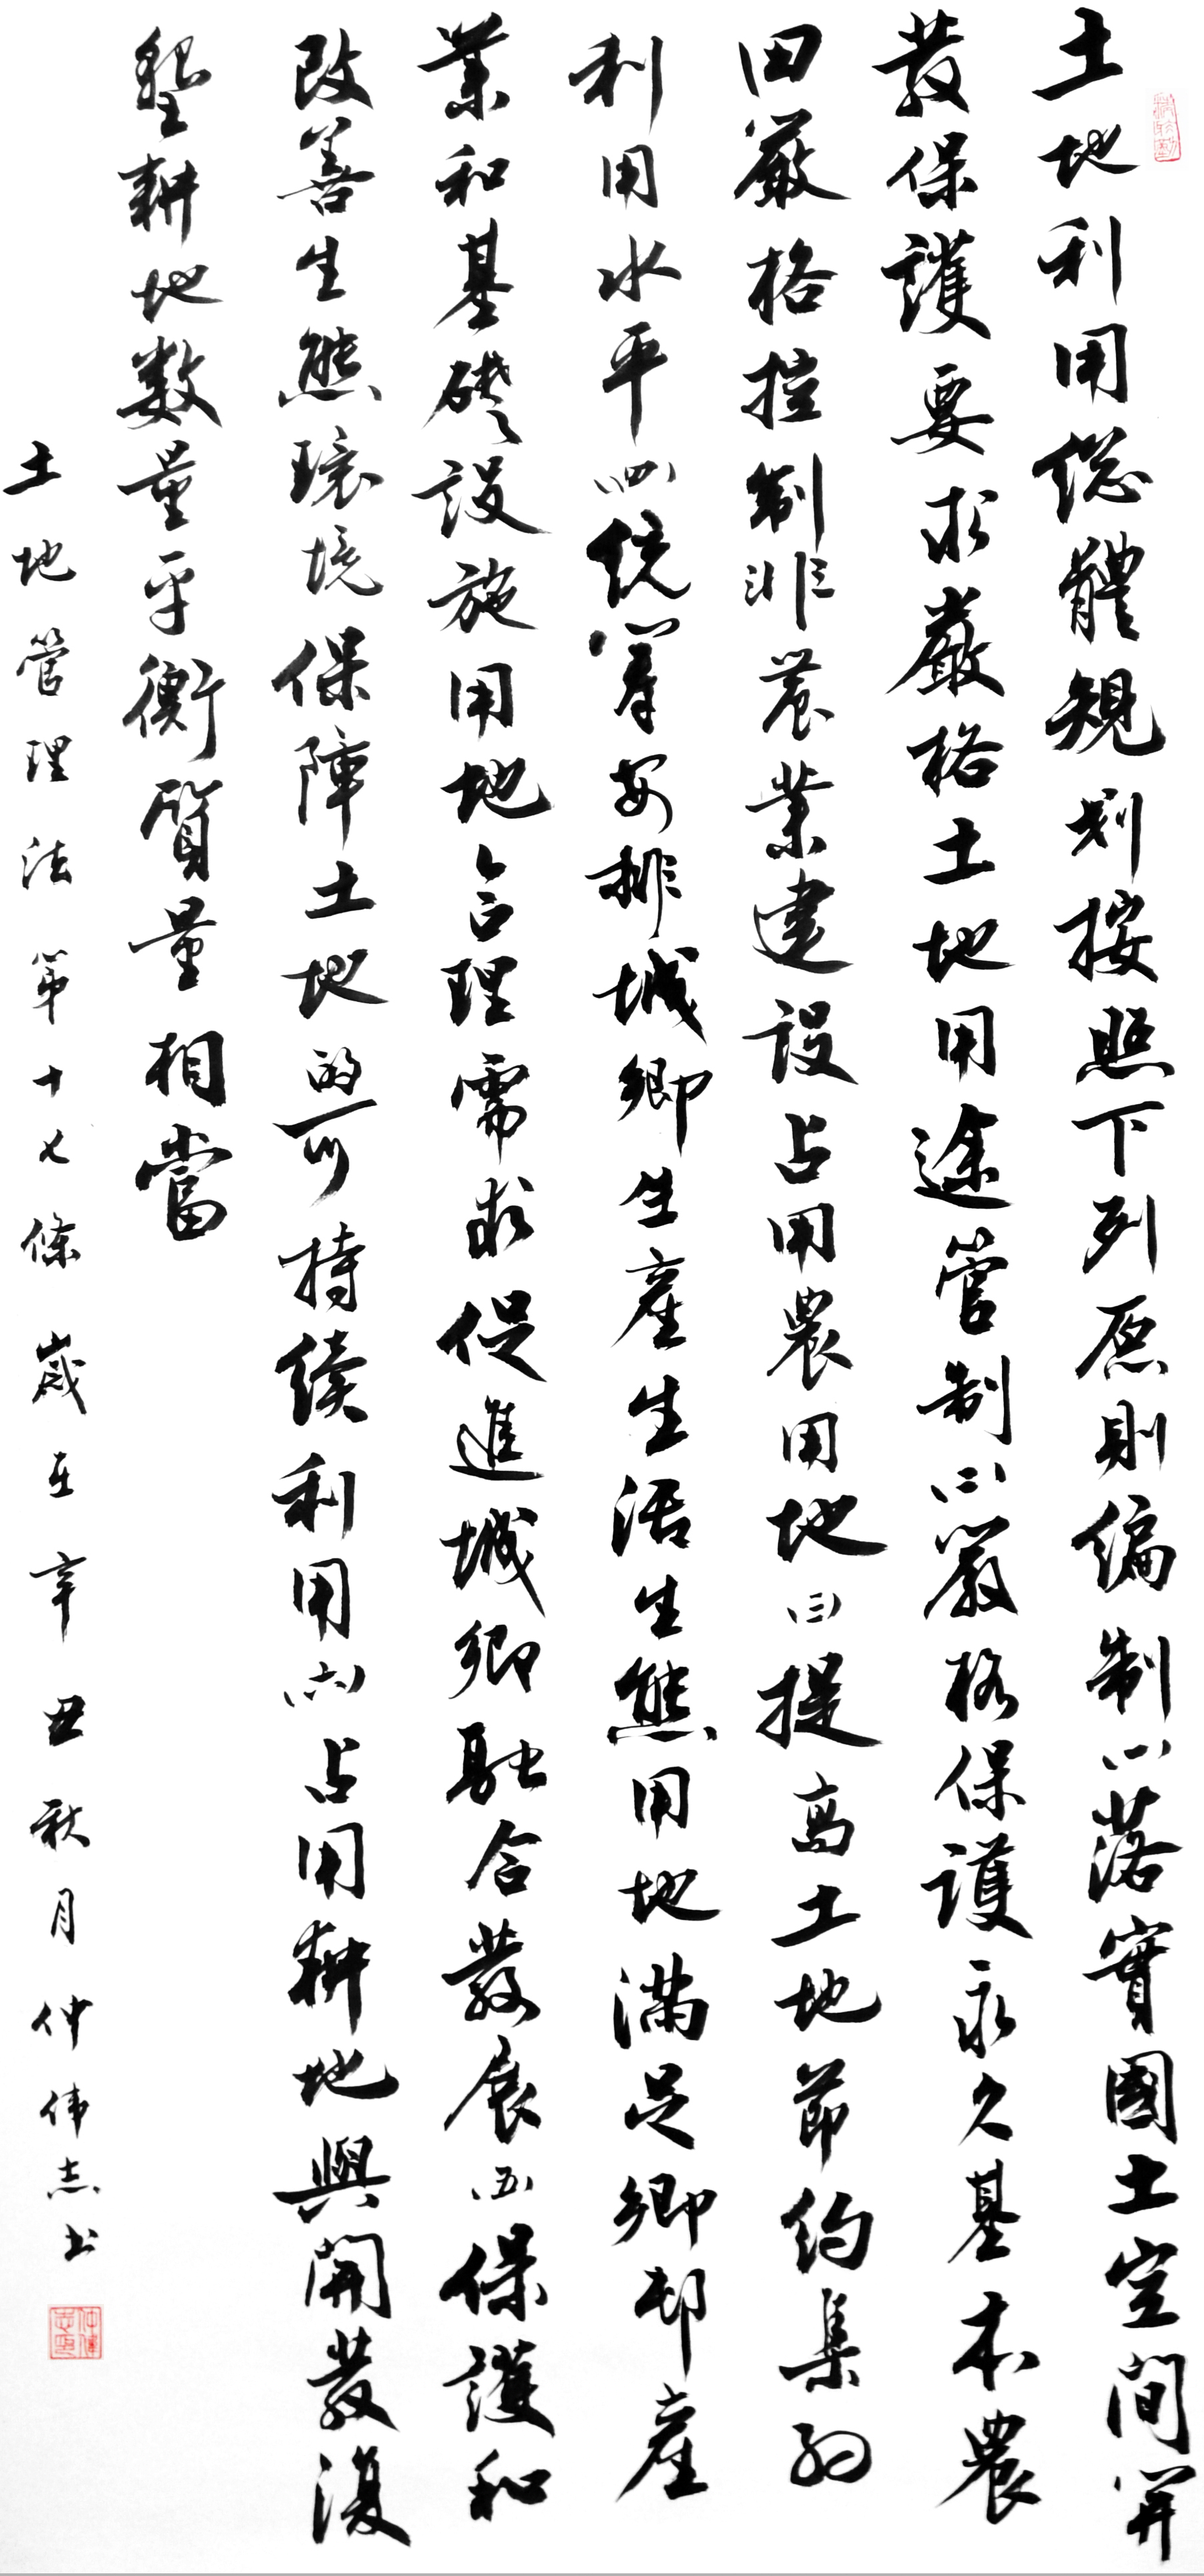 土地利用總體規划按照下列原則編制(一)落實國土空間開
發保護要求嚴格土地用途管制(二)嚴格保護永久基本農
田嚴格控制非農業建設占用農用地(三)提高土地節約集約
利用水平(四)統籌安排城鄉生產生活生態用地滿足鄉邨產
業和基礎設施用地合理需求促進城鄉融合發展(五)保護和
改善生態環境保障土地的可持續利用(六)占用耕地與開發復
墾耕地数量平衡質量相當
土地管理法第十七條歲在辛丑秋月仲伟志书
仲偉志印